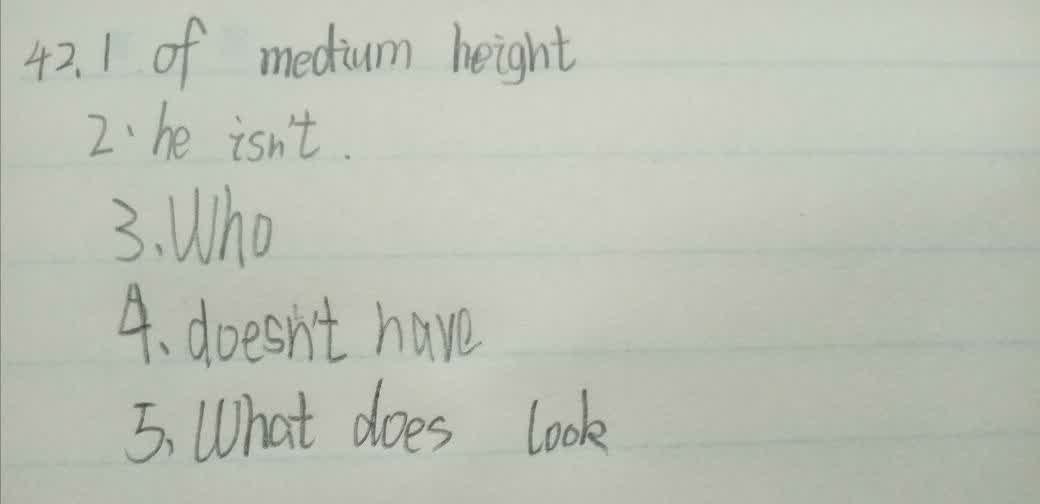 42.1 of medium height
2. he isn't.
3. Who
4. doesn't have
5. What does look